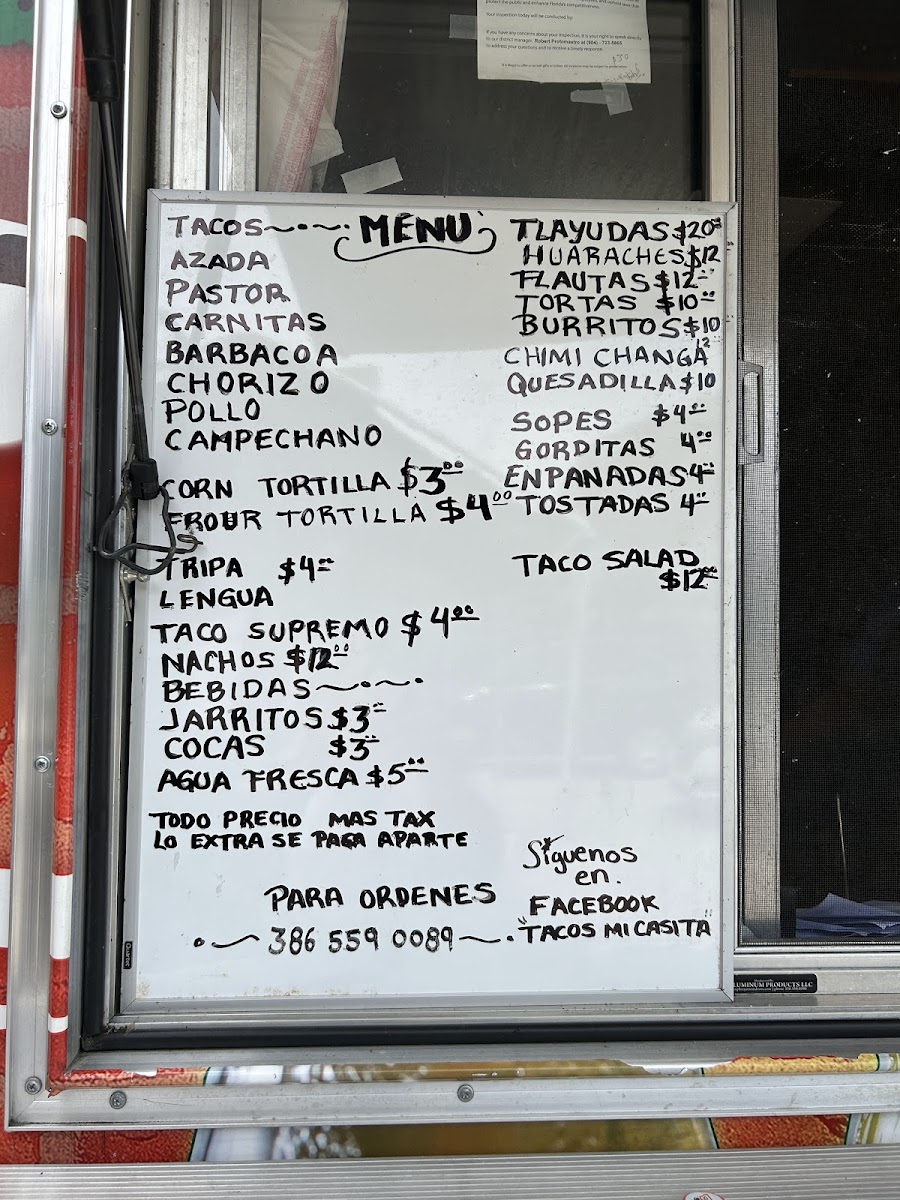 protect the public and enhance Florida's competitiveness.
Your inspection today will be conducted by:
If you have any concerns about your inspection, it is your right to speak directly
to our district manager, Robert
to address your questions and to receive a timely response.
$30
MENU
TACOS
AZADA
PASTOR
CARNITAS
BARBACOA
CHORIZO
POLLO
CAMPECHANO
CORN TORTILLA $3.00
FROUR TORTILLA $4.00
TRIPA $4.00
LENGUA
TACO SUPREMO $4.00
NACHOS $12.00
BEBIDAS
JARRITOS $3.00
COCAS $3.00
AGUA FRESCA $5.00
TODO PRECIO MAS TAX
LO EXTRA SE PAGA APARTE
PARA ORDENES
386 559 0089
TLAYUDAS $20.00
HUARACHES $12
FLAUTAS $12.00
TORTAS $10.00
BURRITOS $10
CHIMI CHANGA 12
QUESADILLA $10
SOPES $4.00
GORDITAS 4.00
ENPANADAS 4.00
TOSTADAS 4.00
TACO SALAD
$12.00
Síguenos
en.
FACEBOOK
"TACOS MI CASITA"
Quartet
LUMINUM PRODUCTS LLC